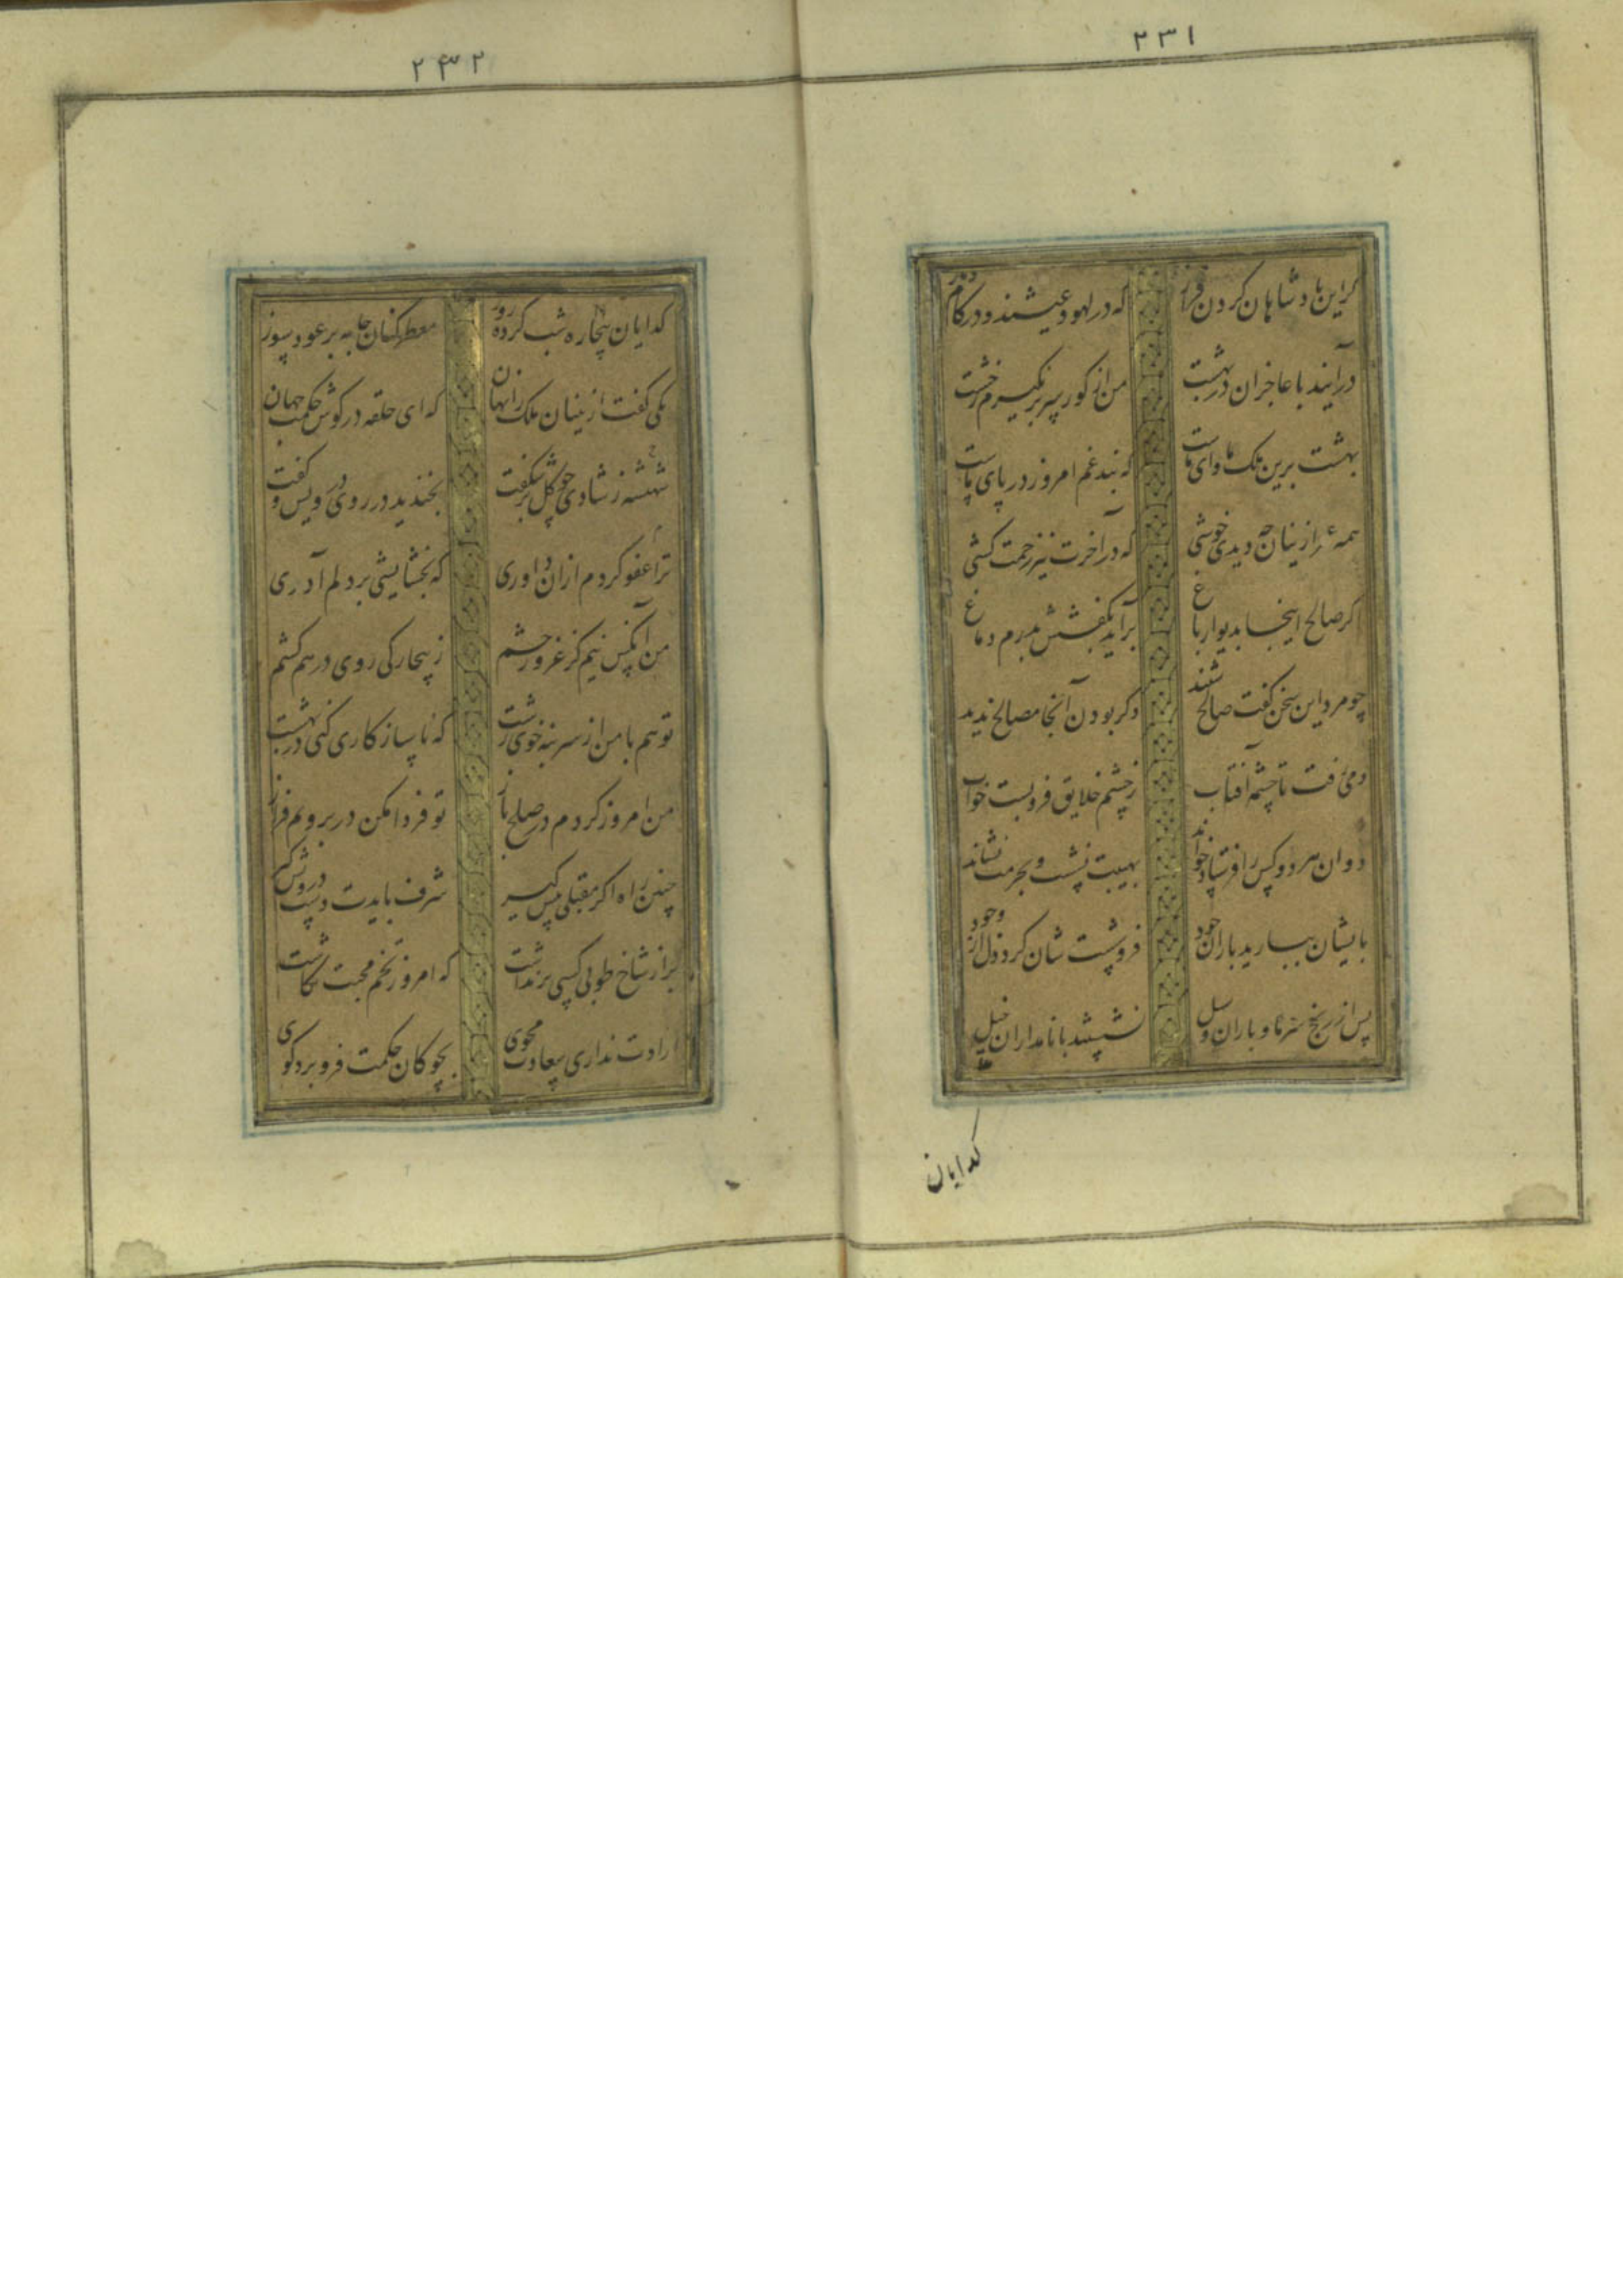 ۲۳۱
گر این پادشاهان گردن فراز که در لهو و عیشند و در کام و ناز
درآیند با عاجزان در بهشت من از گور سر بر نگیرم ز خشت
بهشت برین ملک و ماوای ماست که بند غم امروز در پای ماست
همه عمر ازینان چه دیدی خوشی که در آخرت نیز زحمت کشی
اگر صالح اینجا بدیوار باغ برآید بکفشش بدرم دماغ
چو مرد این سخن گفت صالح شنید دگر بودن آنجا مصالح ندید
دمی رفت تا چشمه آفتاب ز چشم خلایق فرو شست خواب
دوان هر دو کس را فرستاد و خواند بهیبت نشست و بحرمت نشاند
بایشان ببارید باران جود فرو شست شان گرد ذل از وجود
پس از رنج سرما و باران و سیل نشستند با نامداران خیل
گدایان
۲۳۲
گدایان بیچاره شب کرده روز معطر کنان جامه بر عود سوز
یکی گفت ازینان ملک را نهان که ای حلقه در گوش حکمت جهان
شهنشه ز شادی چو گل بر شکفت بخندید در روی درویش و گفت
ترا عفو کردم ازان داوری که بخشایشی بر دلم آدری
من آنکس نیم کز غرور حشم ز بیچارگی روی درهم کشم
تو هم با من از سر بنه خوی زشت که ناسازگاری کنی در بهشت
من امروز کردم در صلح باز تو فردا مکن در برویم فراز
چنین راه اگر مقبلی پیش گیر شرف بایدت دست درویش گیر
بر از شاخ طوبی کسی بر نداشت که امروز تخم محبت نکاشت
ارادت نداری سعادت مجوی بچوگان حکمت فرو برد گوی